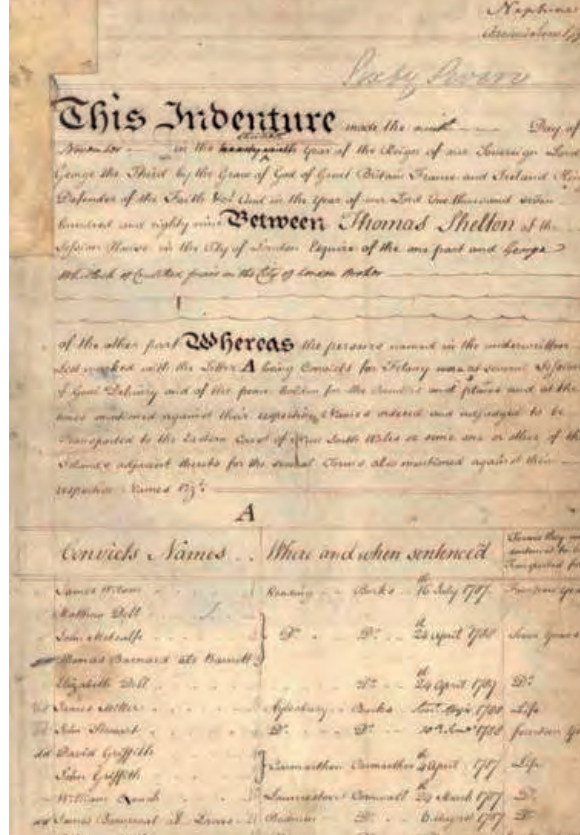 Neptune
This Indenture made the ninth Day of
November in the twenty ninth Year of the Reign of our Sovereign Lord
George the Third by the Grace of God of Great Britain France and Ireland King
Defender of the Faith &c. And in the Year of our Lord One thousand seven
hundred and eighty nine Between Thomas Shelton of the
Session House in the City of London Esquire of the one part and George
Whitlock of Crutched friars in the City of London Broker
of the other part Whereas the persons named in the underwritten
List marked with the Letter A being Convicts for Felony were at several Sessions
of Gaol Delivery and of the peace holden for the Counties and places and at the
times mentioned against their respective Names ordered and adjudged to be
Transported to the Eastern Coast of New South Wales or some one or other of the
Islands adjacent thereto for the several Terms also mentioned against their
respective Names Vizt.
A
Convicts Names Where and when sentenced Terms they were sentenced to be Transported for
James Wilson Reading Berks 16th July 1787 Fourteen Years
Matthew Dell
John Metcalfe Do. Do. 24th April 1788 Seven Years
Thomas Barnard als Barrett
Elizabeth Dell Do. 24th April 1787 Do.
James Miller Aylesbury Bucks 1788 Life
John Stewart Do. Do. 1788 fourteen
David Griffith
John Griffith Carmarthen Carmarthen 4th April 1787 Life
William Launceston Cornwall 24th March 1787 Do.
James als Bodmin Do. 6 August 1787 Do.